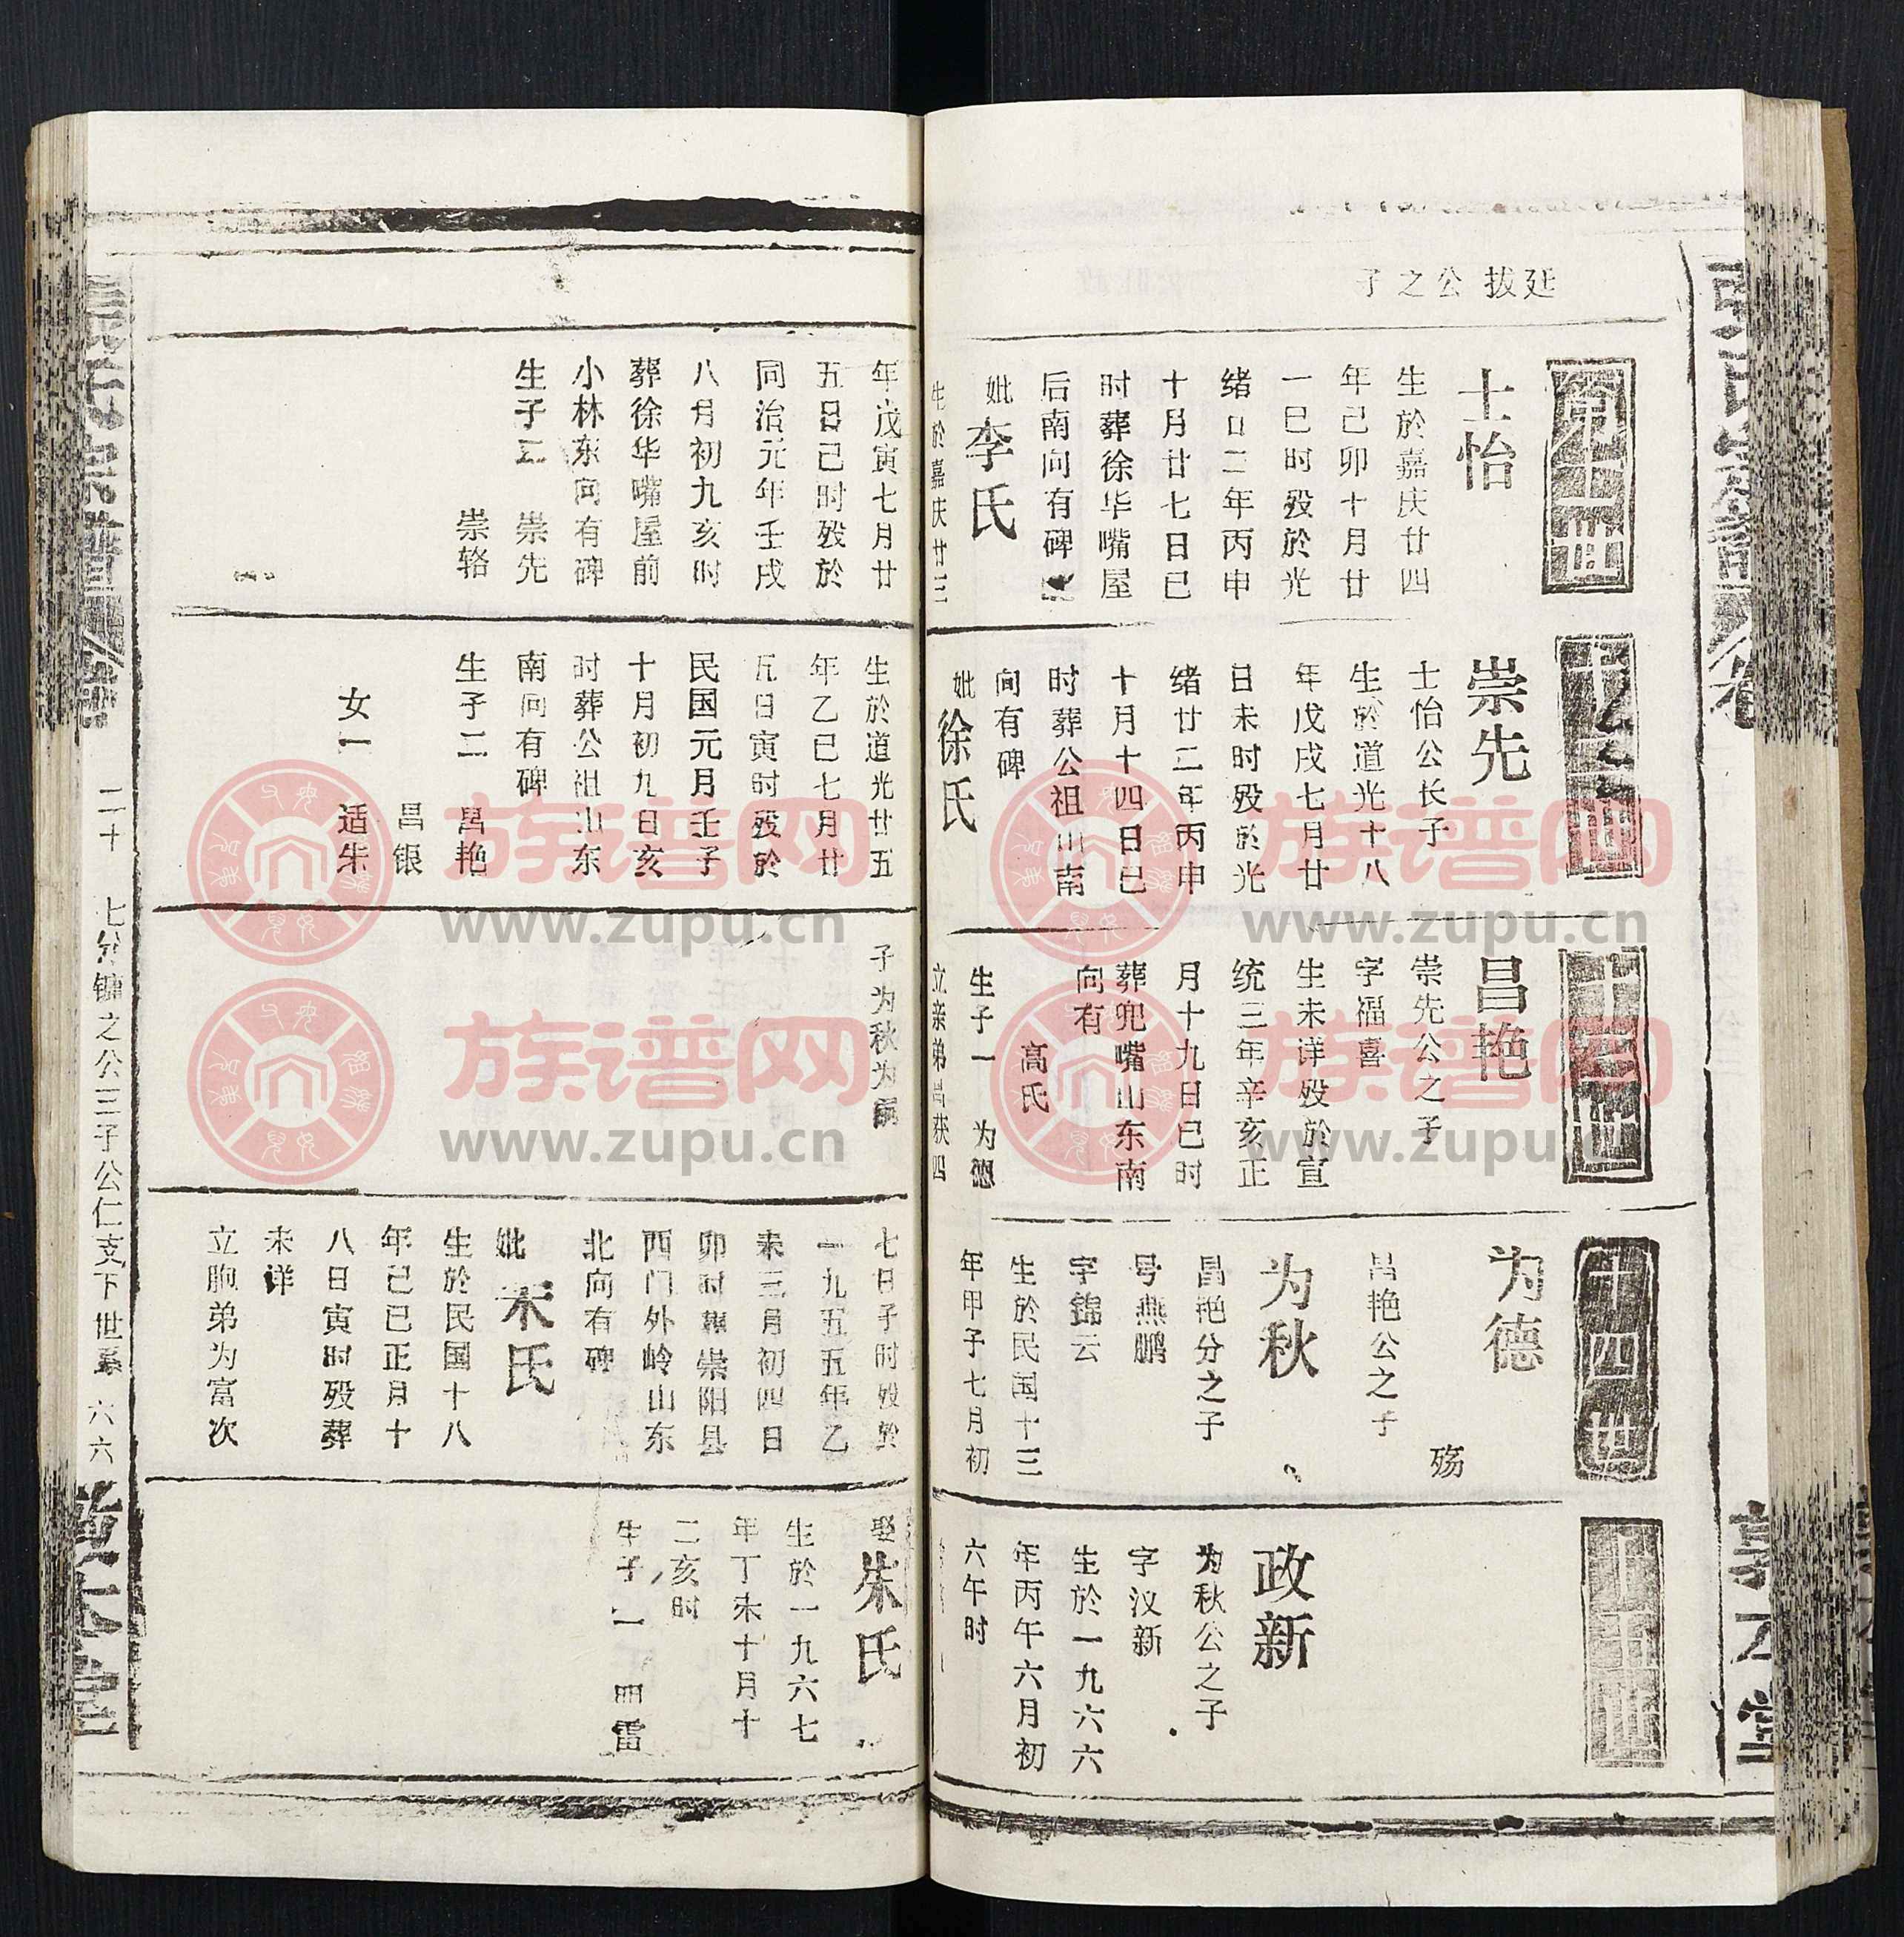 延拔公之子
第十一世
士怡
生於嘉庆廿四
年己卯十月廿
一巳时殁於光
绪廿二年丙申
十月廿七日巳
时葬徐华嘴屋
后南向有碑
妣李氏
生於嘉庆廿三
年戊寅七月廿
五日己时殁於
同治元年壬戌
八月初九亥时
葬徐华嘴屋前
小林东向有碑
生子二 崇先
崇辂
十二世
崇先
士怡公长子
生於道光十八
年戊戌七月廿
日未时殁於光
绪廿二年丙申
十月十四日巳
时葬公祖山南
向有碑
妣徐氏
生於道光廿五
年乙巳七月廿
五日寅时殁於
民国元月壬子
十月初九日亥
时葬公祖山东
南向有碑
生子二 昌艳
昌银
女一 适朱
十三世
昌艳
崇先公之子
字福喜
生未详殁於宣
统三年辛亥正
月十九日巳时
葬兜嘴山东南
向有
高氏
生子一 为德
立亲弟昌获四
子为秋为嗣
十四世
为德
昌艳公之子
殇
为秋
昌艳分之子
号燕鹏
字锦云
生於民国十三
年甲子七月初
七日子时殁於
一九五五年乙
未三月初四日
卯时葬崇阳县
西门外岭山东
北向有碑
妣宋氏
生於民国十八
年己巳正月十
八日寅时殁葬
未详
立胞弟为富次
十五世
政新
为秋公之子
字汉新
生於一九六六
年丙午六月初
六午时
娶朱氏
生於一九六七
年丁未十月十
二亥时
生子一 四雷
二十 七分镛之公三子公仁支下世系 六六
族谱网
www.zupu.cn
族谱网
www.zupu.cn
族谱网
www.zupu.cn
族谱网
www.zupu.cn